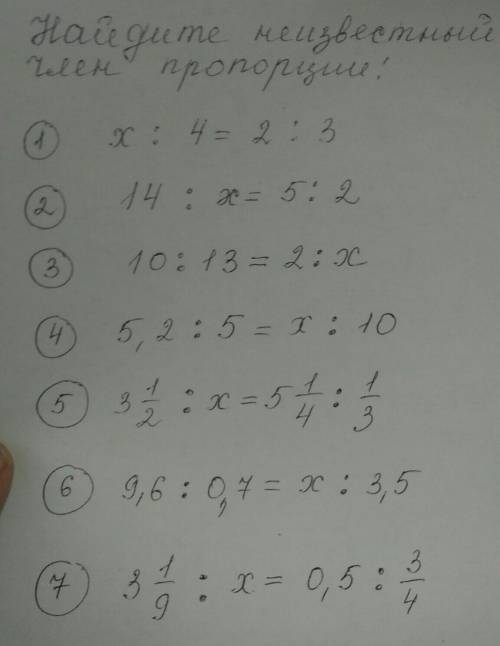 Найдите неизвестный
член пропорции!
1 x : 4 = 2 : 3
2 14 : x = 5 : 2
3 10 : 13 = 2 : x
4 5,2 : 5 = x : 10
5 3 1/2 : x = 5 1/4 : 1/3
6 9,6 : 0,7 = x : 3,5
7 3 1/9 : x = 0,5 : 3/4